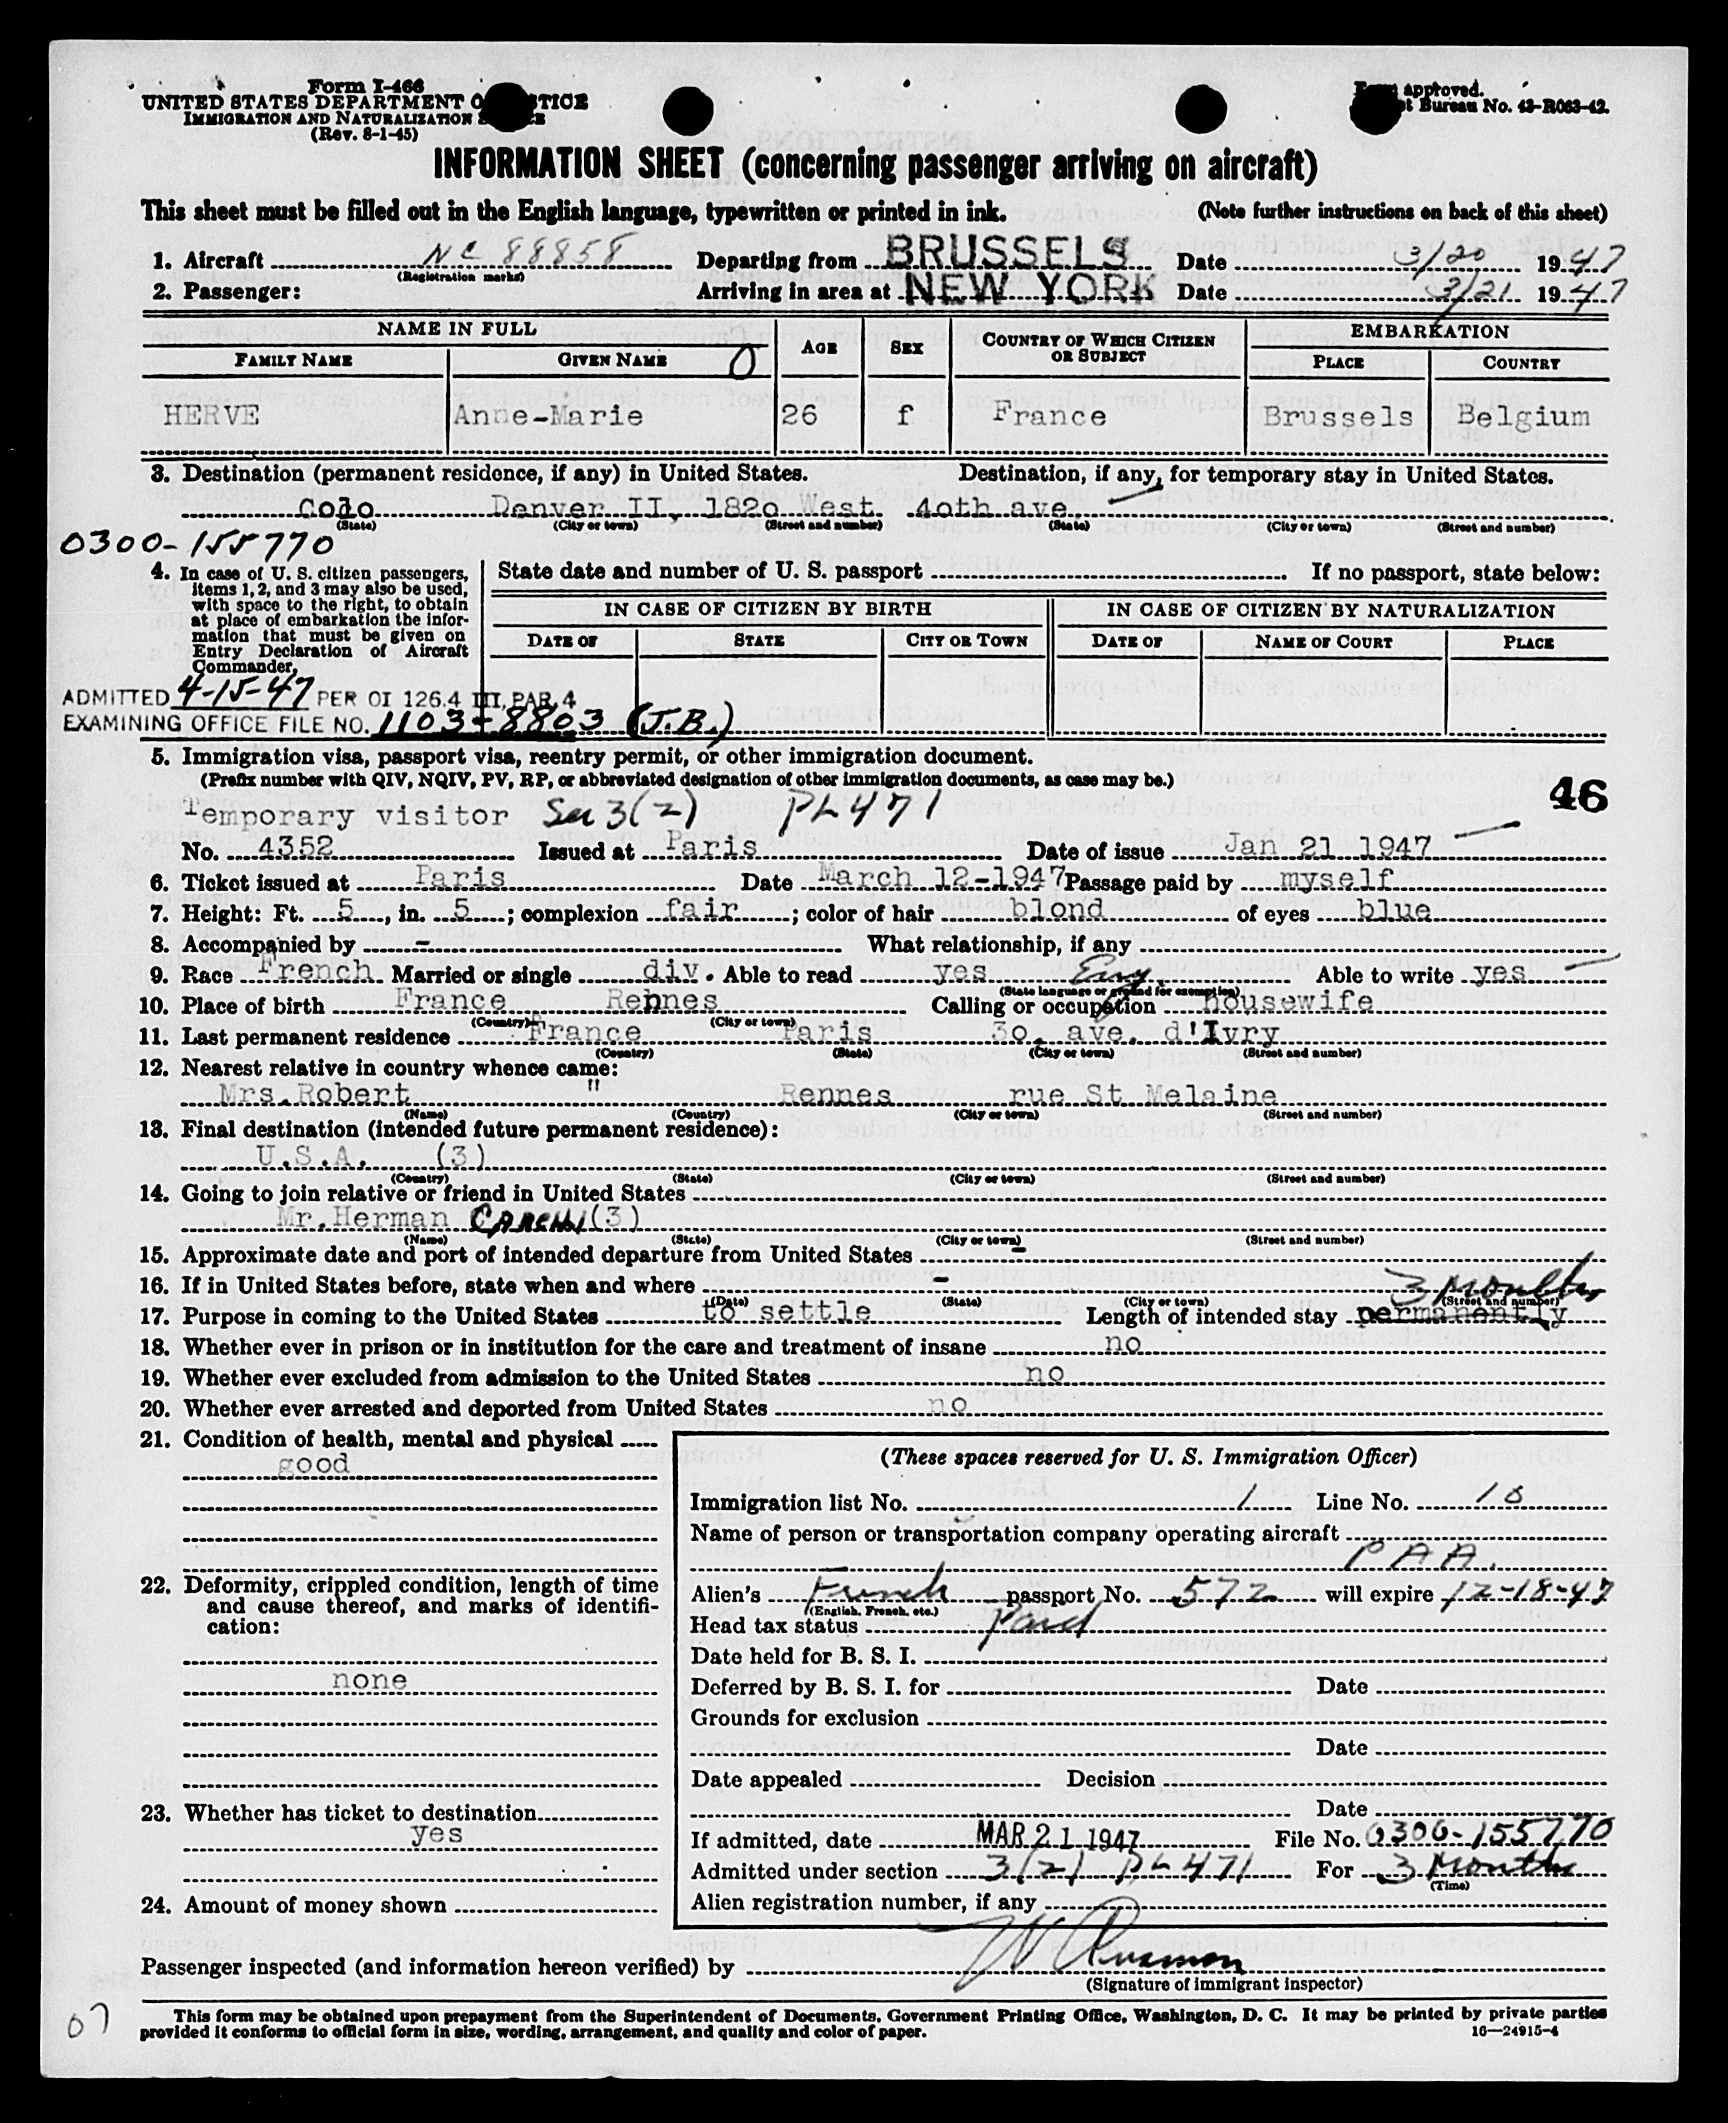 Form I-466
UNITED STATES DEPARTMENT O TICE
IMMIGRATION AND NATURALIZATION
(Rev. 8-1-45)
approved.
Bureau No. 43-R063-42.
INFORMATION SHEET (concerning passenger arriving on aircraft)
This sheet must be filled out in the English language, typewritten or printed in ink. (Note further instructions on back of this sheet)
1. Aircraft NC 88858 Departing from BRUSSELS Date 3/20 1947
(Registration marks)
2. Passenger: Arriving in area at NEW YORK Date 3/21 1947
NAME IN FULL AGE SEX COUNTRY OF WHICH CITIZEN OR SUBJECT EMBARKATION
FAMILY NAME GIVEN NAME O PLACE COUNTRY
HERVE Anne-Marie 26 f France Brussels Belgium
3. Destination (permanent residence, if any) in United States. Destination, if any, for temporary stay in United States.
Colo Denver II, 1820 West 4oth ave.
(State) (City or town) (Street and number) (State) (City or town) (Street and number)
0300-155770
4. In case of U. S. citizen passengers, items 1, 2, and 3 may also be used, with space to the right, to obtain at place of embarkation the information that must be given on Entry Declaration of Aircraft Commander.
State date and number of U. S. passport If no passport, state below:
IN CASE OF CITIZEN BY BIRTH IN CASE OF CITIZEN BY NATURALIZATION
DATE OF STATE CITY OR TOWN DATE OF NAME OF COURT PLACE
ADMITTED 4-15-47 PER OI 126.4 III, PAR. 4
EXAMINING OFFICE FILE NO. 1103-8803 (J.B.)
5. Immigration visa, passport visa, reentry permit, or other immigration document.
(Prefix number with QIV, NQIV, PV, RP, or abbreviated designation of other immigration documents, as case may be.)
46
Temporary visitor Sec 3(2) PL 471
No. 4352 Issued at Paris Date of issue Jan 21 1947
6. Ticket issued at Paris Date March 12-1947 Passage paid by myself
7. Height: Ft. 5, in. 5; complexion fair; color of hair blond of eyes blue
8. Accompanied by - What relationship, if any
9. Race French Married or single div. Able to read yes Eng Able to write yes
(State language or ground for exemption)
10. Place of birth France Rennes Calling or occupation housewife
(Country) (City or town)
11. Last permanent residence France Paris 3o. ave. d'Ivry
(Country) (State) (City or town) (Street and number)
12. Nearest relative in country whence came:
Mrs.Robert " Rennes rue St Melaine
(Name) (Country) (City or town) (Street and number)
13. Final destination (intended future permanent residence):
U.S.A. (3)
(Country) (State) (City or town) (Street and number)
14. Going to join relative or friend in United States
Mr.Herman (3)
(Name) (State) (City or town) (Street and number)
15. Approximate date and port of intended departure from United States -
16. If in United States before, state when and where - 3 Months
(Date) (State) (City or town) (Street and number)
17. Purpose in coming to the United States to settle Length of intended stay permanently
18. Whether ever in prison or in institution for the care and treatment of insane no
19. Whether ever excluded from admission to the United States no
20. Whether ever arrested and deported from United States no
21. Condition of health, mental and physical
good
22. Deformity, crippled condition, length of time and cause thereof, and marks of identification:
none
23. Whether has ticket to destination
yes
24. Amount of money shown
(These spaces reserved for U. S. Immigration Officer)
Immigration list No. 1 Line No. 10
Name of person or transportation company operating aircraft
P A A.
Alien's French passport No. 572 will expire 12-18-47
(English, French, etc.)
Head tax status Paid
Date held for B. S. I.
Deferred by B. S. I. for Date
Grounds for exclusion
Date
Date appealed Decision
Date
If admitted, date MAR 21 1947 File No. 0300-155770
Admitted under section 3(2) PL 471 For 3 Months
(Time)
Alien registration number, if any
Passenger inspected (and information hereon verified) by
(Signature of immigrant inspector)
This form may be obtained upon prepayment from the Superintendent of Documents, Government Printing Office, Washington, D. C. It may be printed by private parties
provided it conforms to official form in size, wording, arrangement, and quality and color of paper. 16—24915-4
07